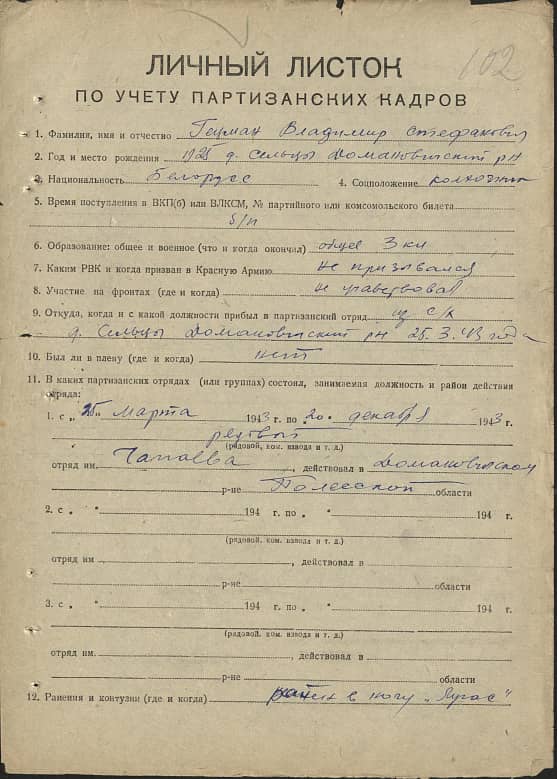 102
ЛИЧНЫЙ ЛИСТОК
ПО УЧЕТУ ПАРТИЗАНСКИХ КАДРОВ
1. Фамилия, имя и отчество Гецман Владимир Стефанович
2. Год и место рождения 1925 д. Сельцы Домановичский р-н
3. Национальность Белорусс 4. Соцположение колхозник
5. Время поступления в ВКП(б) или ВЛКСМ, № партийного или комсомольского билета
б/п
6. Образование: общее и военное (что и когда окончил) общее 3 кл
7. Каким РВК и когда призван в Красную Армию не призывался
8. Участие на фронтах (где и когда) не участвовал
9. Откуда, когда и с какой должности прибыл в партизанский отряд из с/х
д. Сельцы Домановичский рн 25.3.43 года
10. Был ли в плену (где и когда) нет
11. В каких партизанских отрядах (или группах) состоял, занимаемая должность и район действия
отряда:
1. с „25" марта 1943 г. по „20" декабря 1943 г.
рядовой
(рядовой, ком. взвода и т. д.)
отряд им. Чапаева, действовал в Домановичском
р-не Полесской области
2. с „ " 194 г. по „ " 194 г.
(рядовой, ком. взвода и т. д.)
отряд им , действовал в
р-не области
3. с „ " 194 г. по „ " 194 г.
(рядовой, ком. взвода и т. д.)
отряд им. , действовал в
р-не области
12. Ранения и контузии (где и когда) в ногу